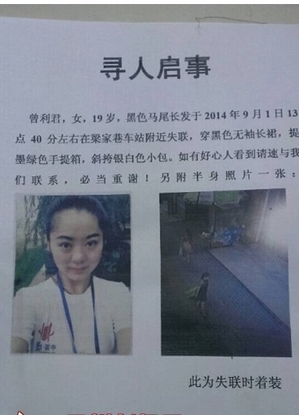 寻人启事
曾利君，女，19岁，黑色马尾长发于2014年9月1日13
点40分左右在梁家巷车站附近失联，穿黑色无袖长裙，提
墨绿色手提箱，斜挎银白色小包。如有好心人看到请速与我
们联系，必当重谢！另附半身照片一张：
此为失联时着装